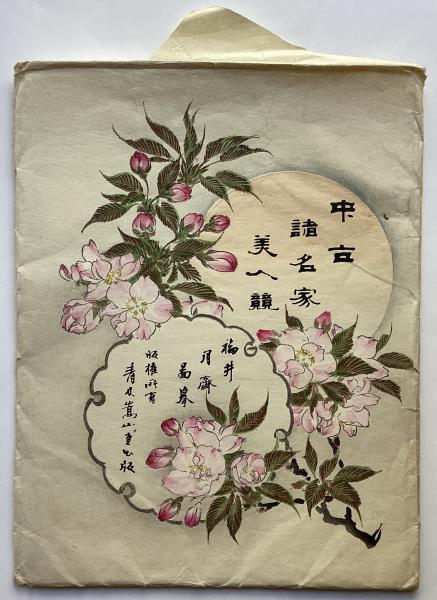 中古
諸名家
美人競
福井
月齋
㫪摹
版權所有
青木嵩山堂出版